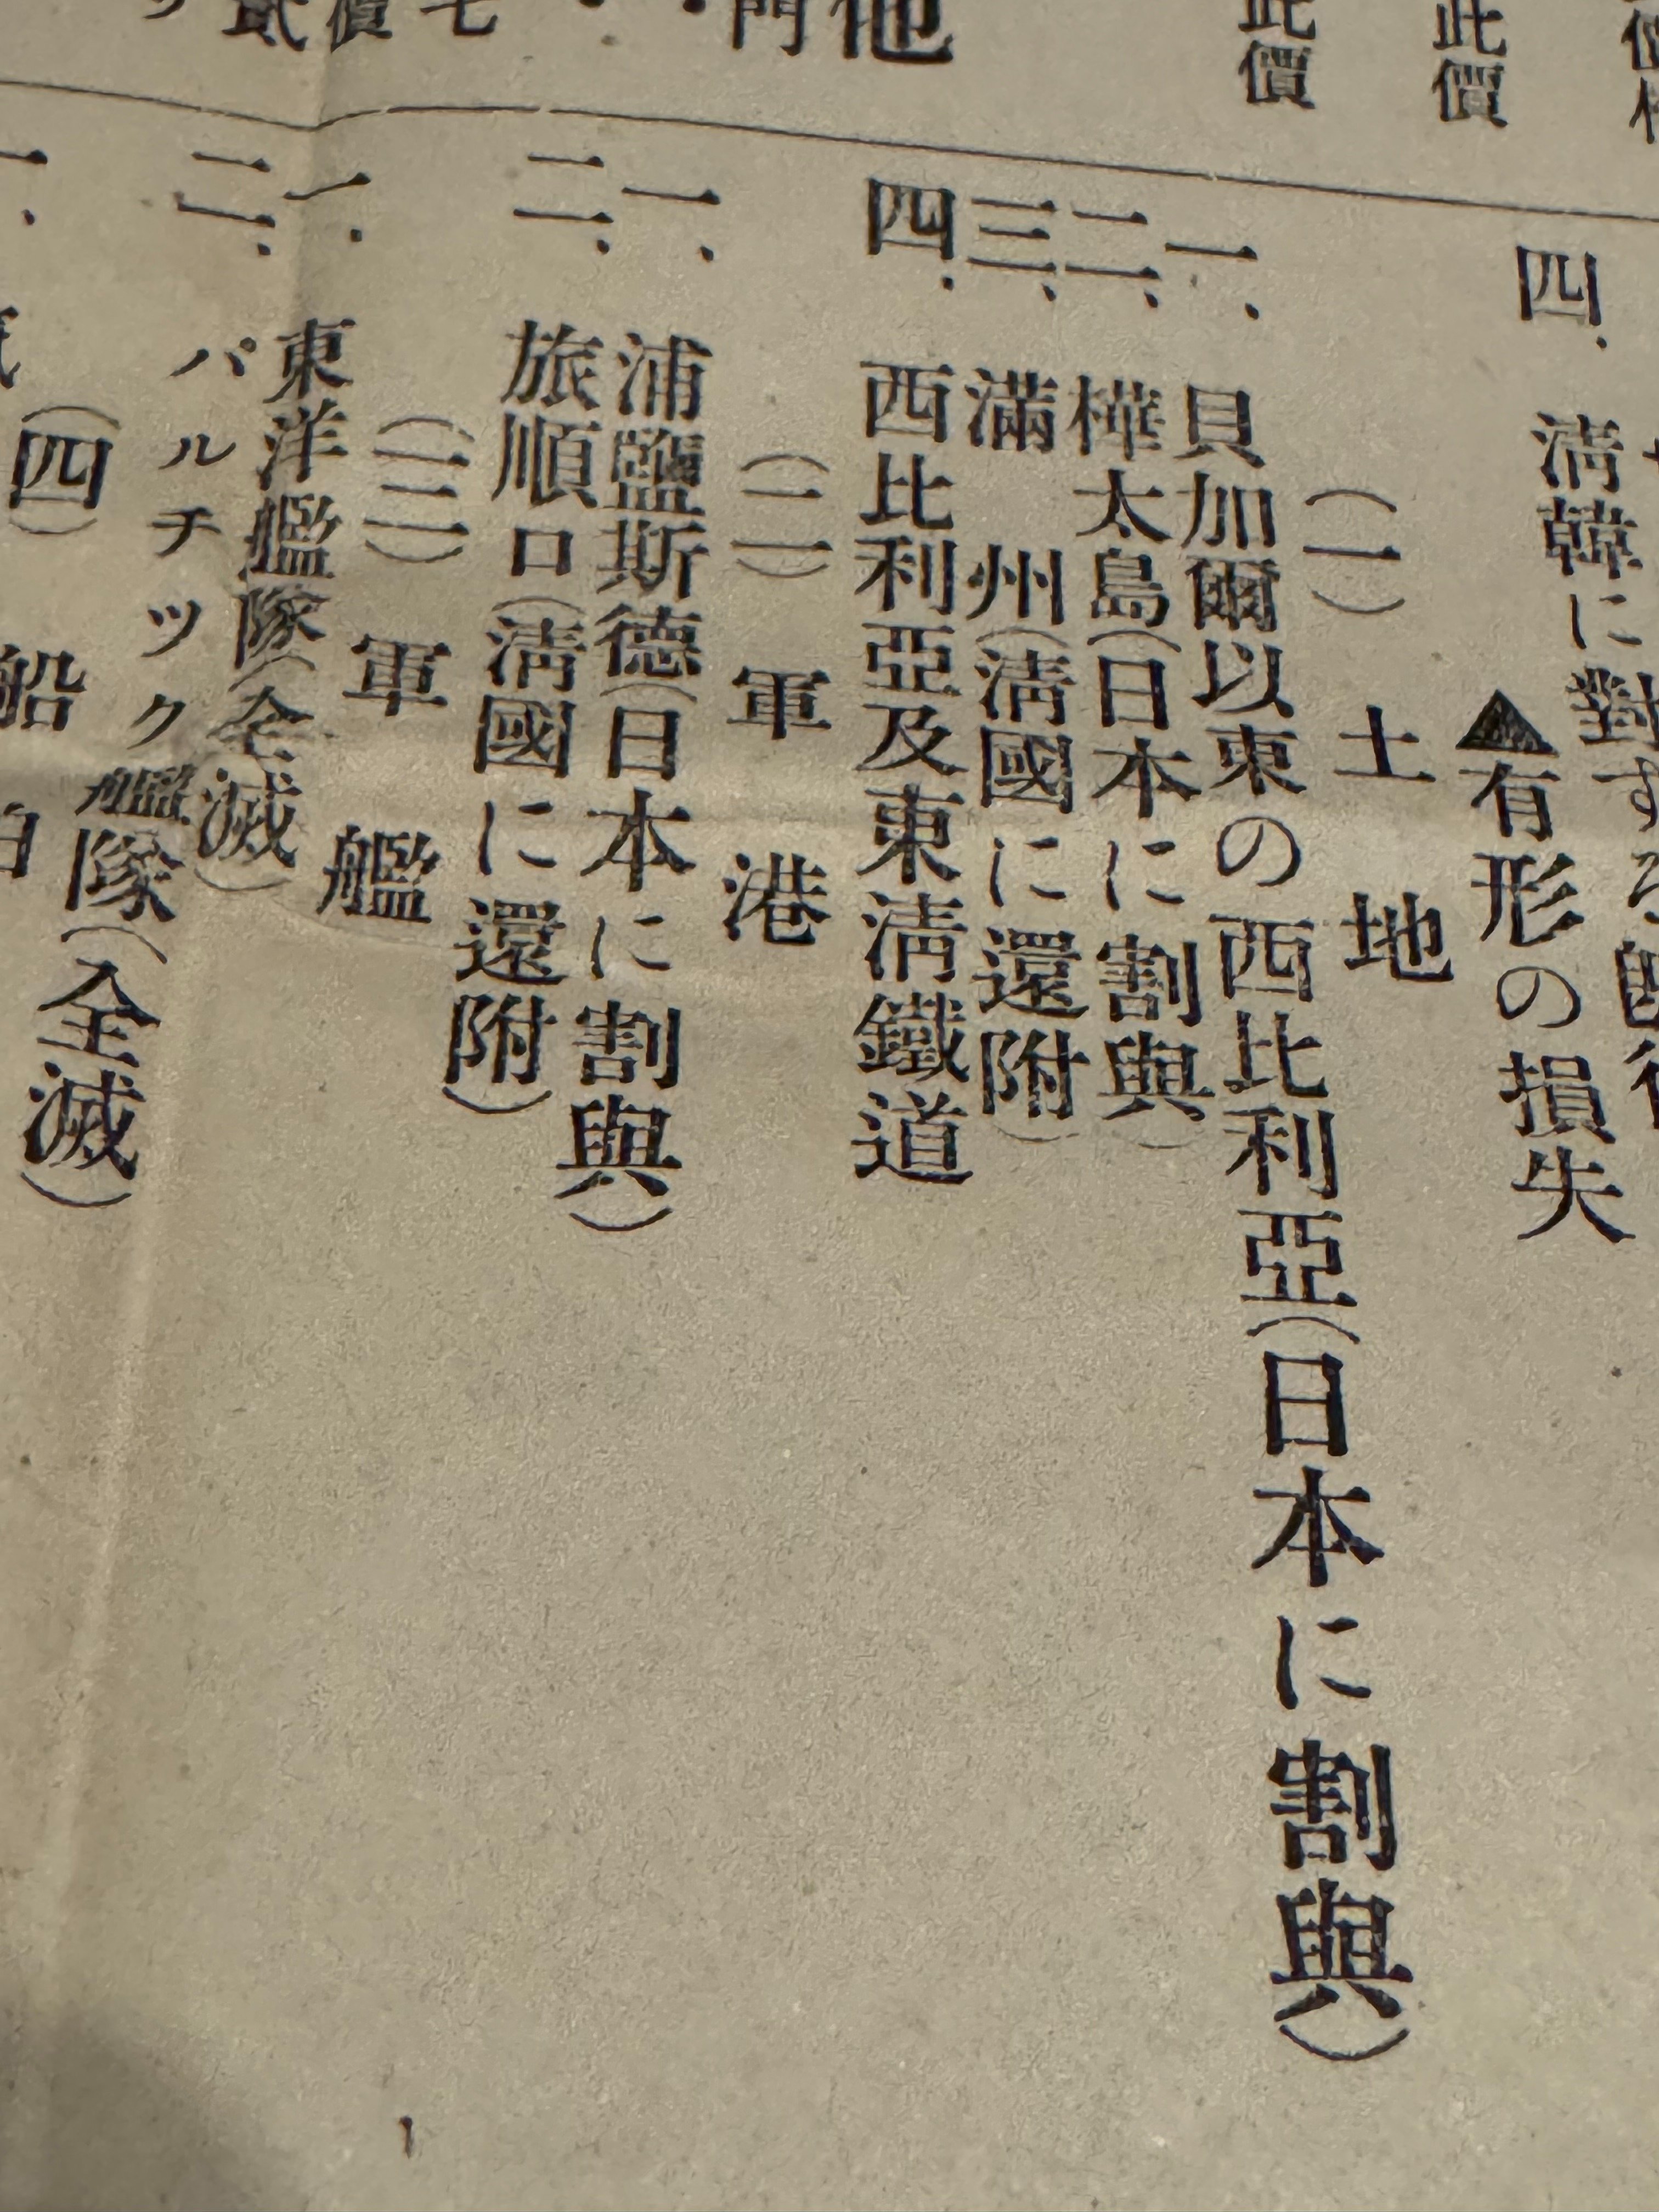 此價
此價
他
門
七
價
貳
四、清韓に對する
▲有形の損失
(一)土地
一、貝加爾以東の西比利亞(日本に割與)
二、樺太島(日本に割與)
三、滿州(清國に還附)
四、西比利亞及東淸鐵道
(二)軍港
一、浦鹽斯德(日本に割與)
二、旅順口(淸國に還附)
(三)軍艦
一、東洋艦隊(全滅)
二、バルチック艦隊(全滅)
(四)船舶
一、